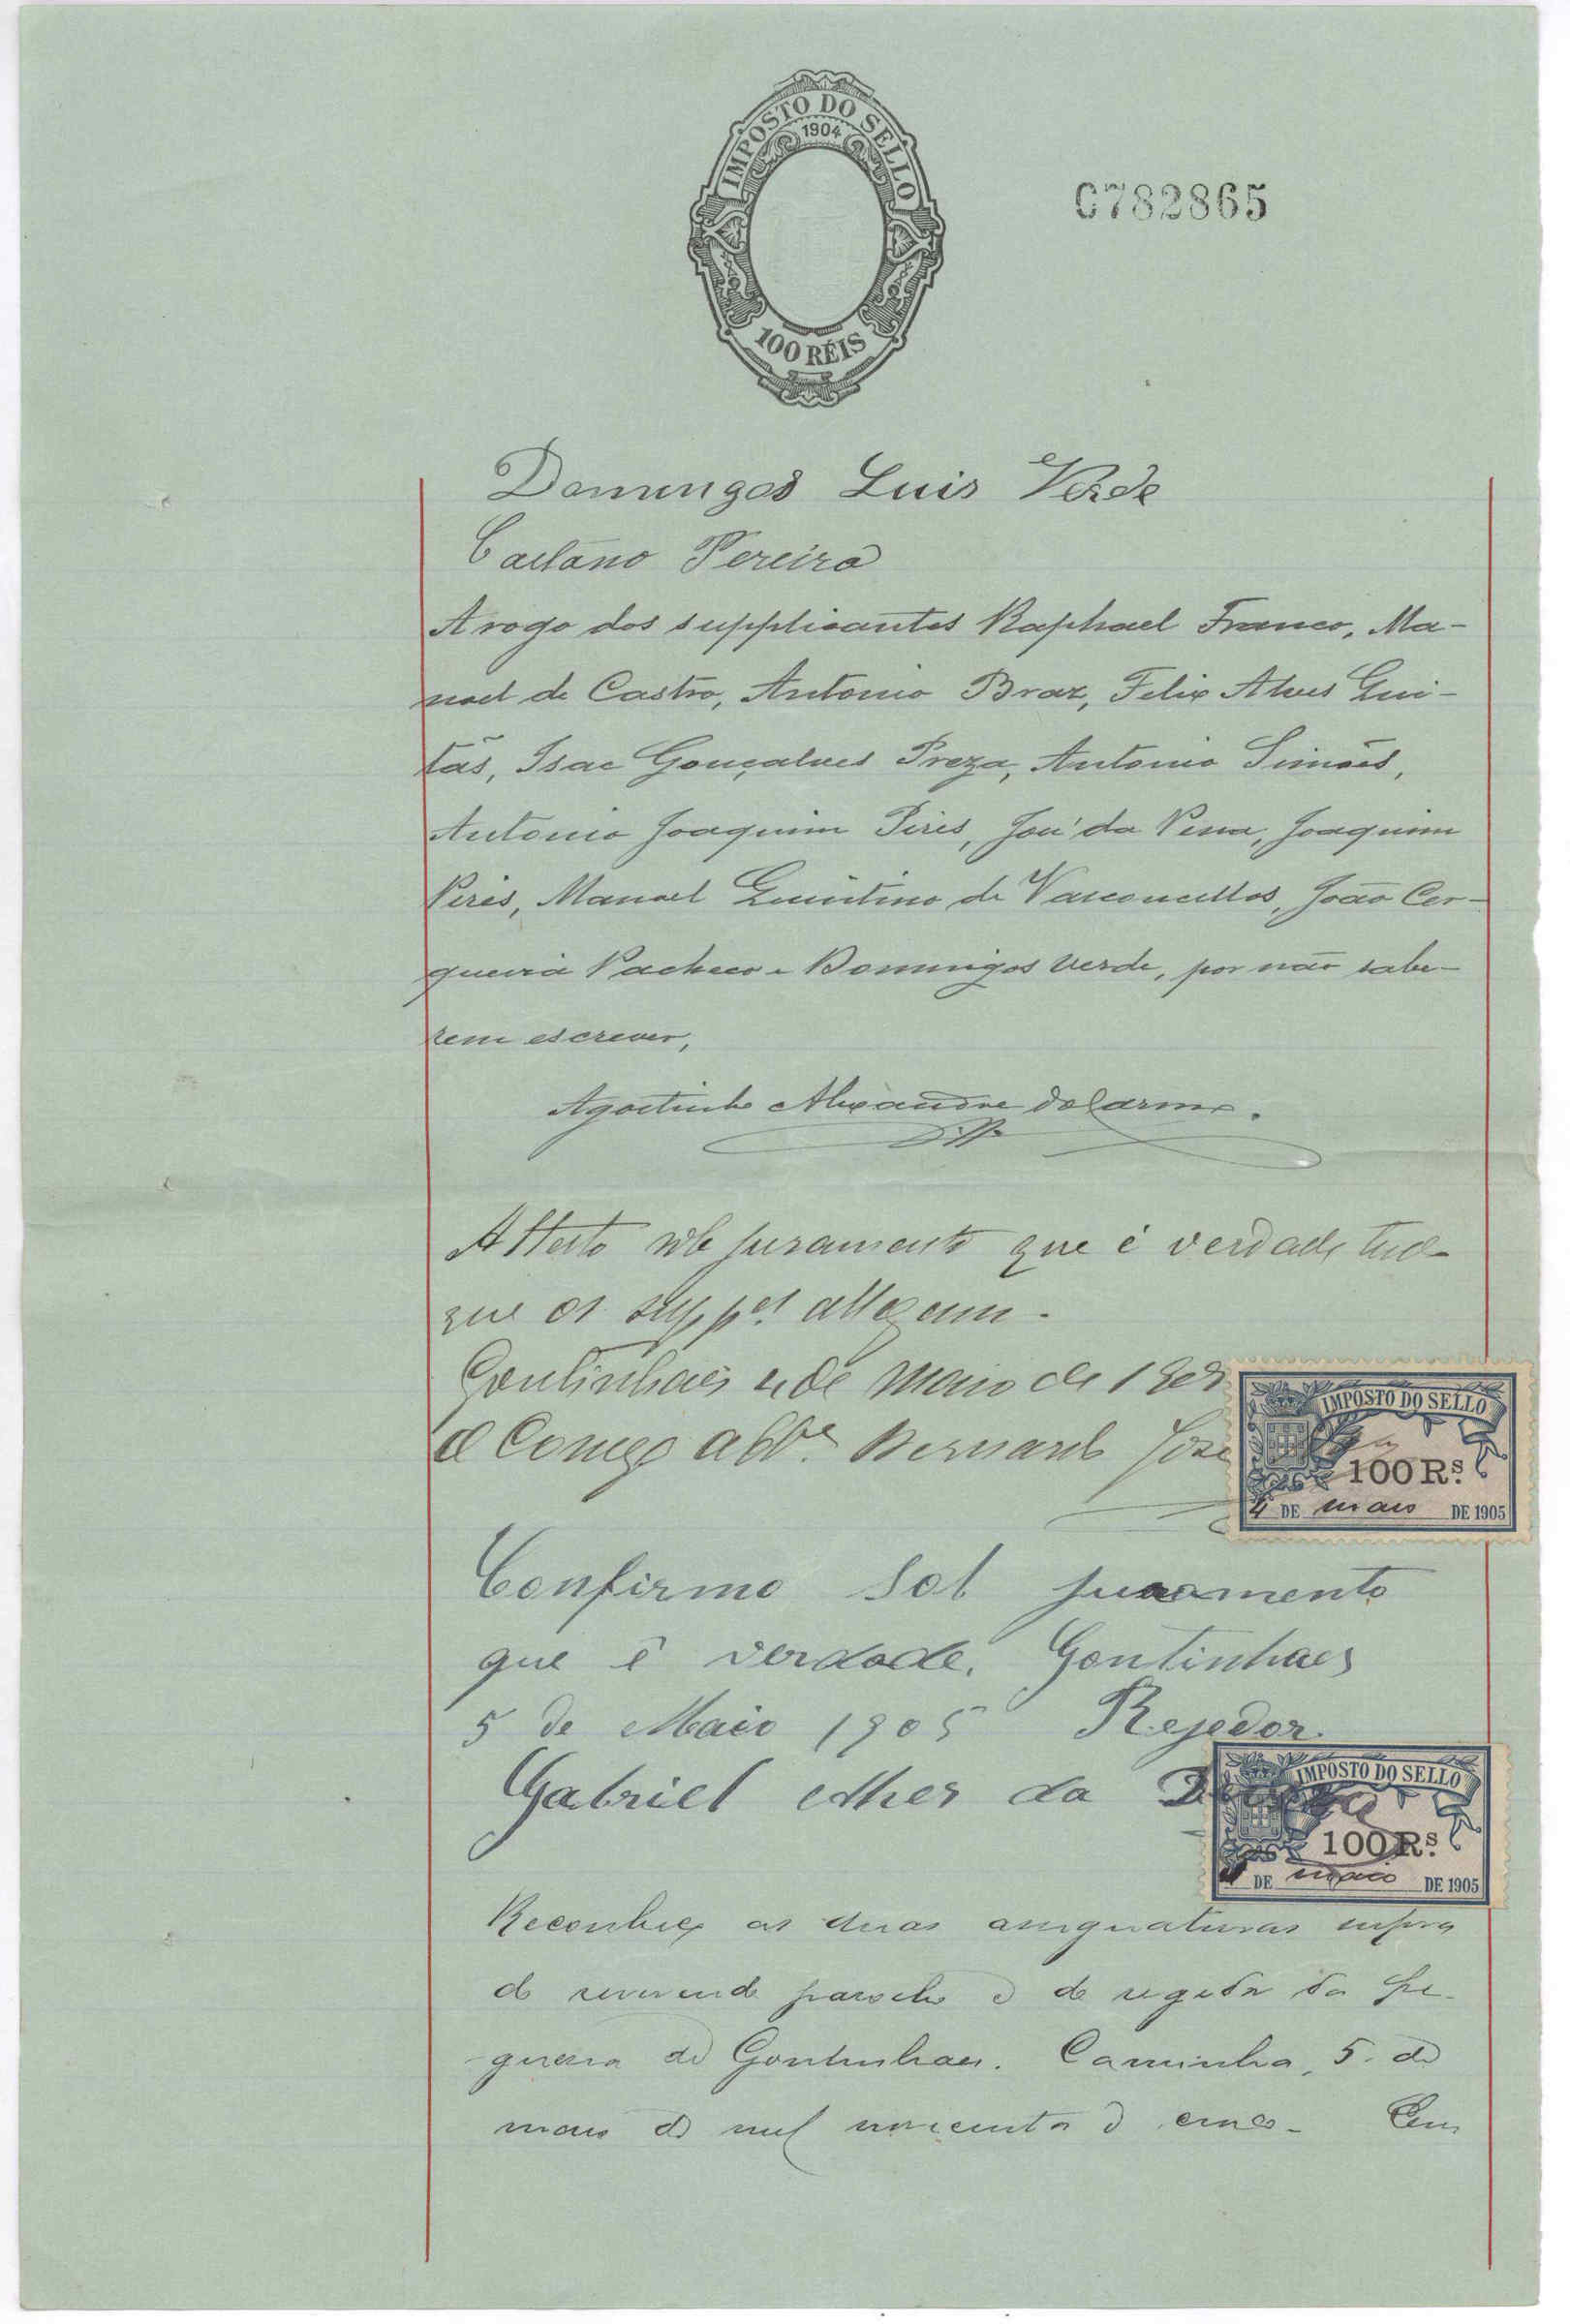 IMPOSTO DO SELLO
1904
100 RÉIS
C782865
Domingos Luis Verde
Caetano Pereira
A rogo dos supplicantes Raphael Franco, Ma-
noel de Castro, Antonio Braz, Felix Alves Qui-
tás, Isac Gonçalves Preza, Antonio Simões,
Antonio Joaquim Pires, José da Pena, Joaquim
Pires, Manoel Quintino de Vasconcellos, João Cer-
queira Pacheco e Domingos Verde, por não sabe-
rem escrever,
Agostinho Alexandre do Carmo.
Attesto sob juramento que é verdade tudo
que os suppes allegam.
Gontinhães 4 de Maio de 190
O Conego Abbe Bernardo José
IMPOSTO DO SELLO
100 Rs.
4 DE maio DE 1905
Confirmo Sob juramento
que é verdade. Gontinhaes
5 de Maio 1905 Rejedor.
Gabriel da
IMPOSTO DO SELLO
100 Rs.
DE maio DE 1905
Reconheço as duas assignaturas supra
do reverendo parocho e do regedor da fre-
guesia de Gontinhaes. Caminha, 5 de
maio de mil novecentos e cinco. Em